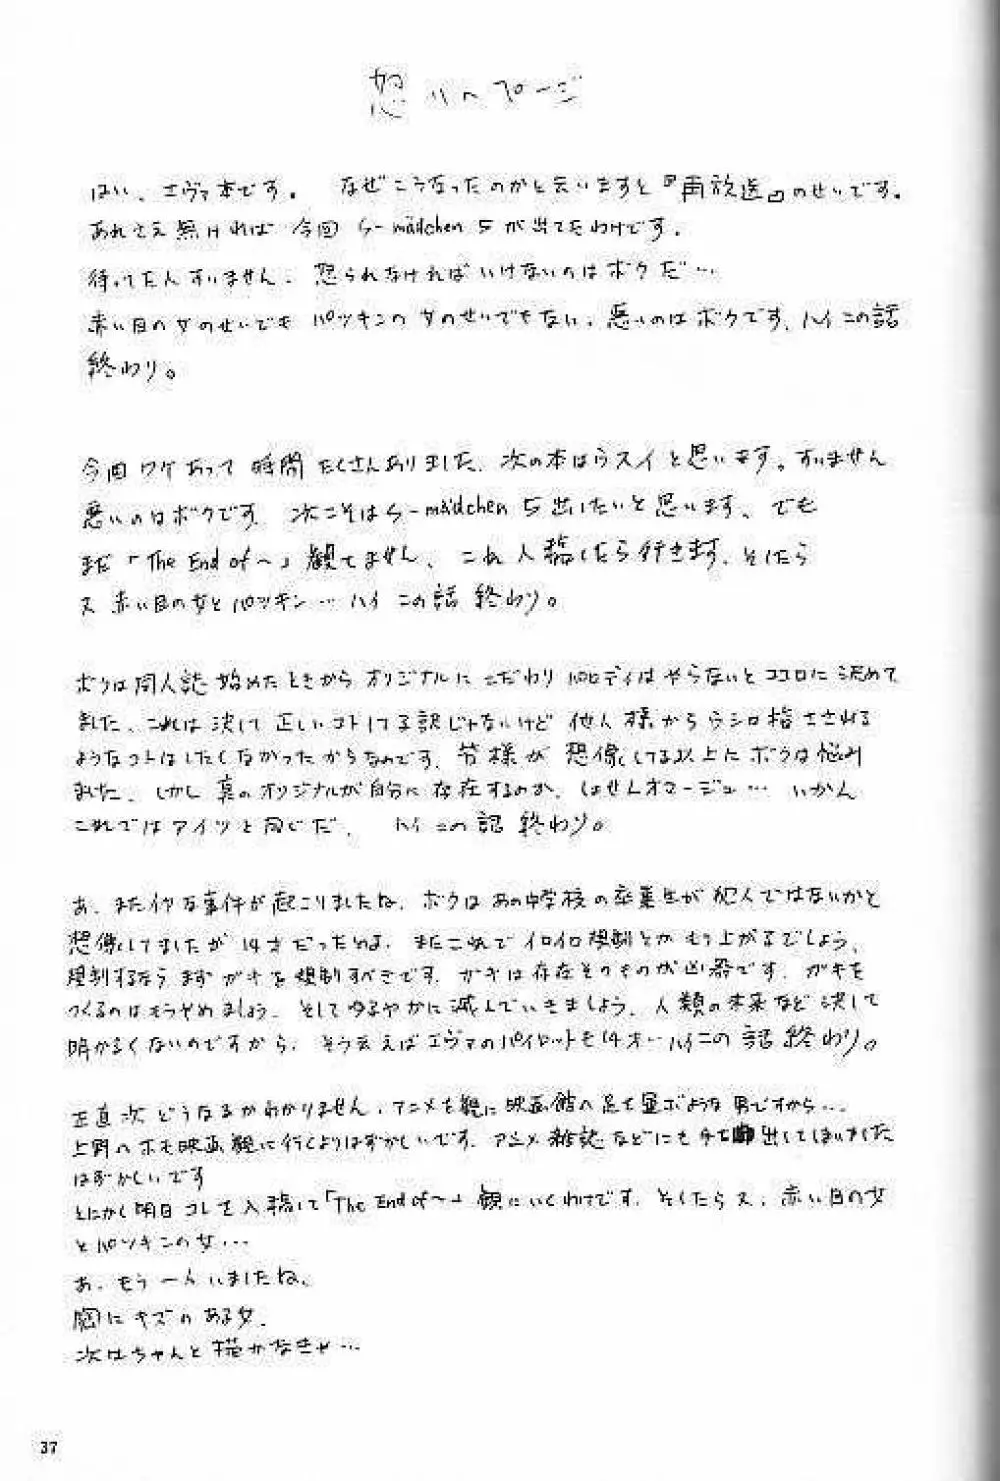 怒りのページ
はい、エヴァ本です。 なぜこうなったのかと云いますと『再放送』のせいです。
あれさえ無ければ 今回 S-mädchen 5 が出てたわけです。
待ってた人すいません、怒られなければいけないのはボクだ…
赤い目の女のせいでも パツキンの女のせいでもない、悪いのはボクです、ハイこの話
終わり。
今回ワケあって 時間たくさんありました、次の本はうスイと思います。すいません
悪いのはボクです 次こそはS-mädchen 5出したいと思います、でも
まだ「The End of〜」観てません、これ入稿したら行きます、そしたら
又 赤い目の女とパツキン…ハイ この話 終わり。
ボクは同人誌始めたときから オリジナルにこだわりパロディはやらないとココロに決めて
ました、これは決して正しいコトしてる訳じゃないけど 他人様からうシロ指さされる
ようなコトはしたくなかったからなのです、皆様が 想像してる以上にボクは悩み
ました、しかし真のオリジナルが自分に存在するのか、しょせんオマージュ… いかん
これではアイツと同じだ、 ハイこの話 終わり。
あ、また 事件が起こりましたね、ボクはあの中学校の卒業生が犯人ではないかと
想像してましたが 14才だったのよ、またこれでイロイロ規制とかもり上がるでしょう、
規制するなら まずガキを規制すべきです、ガキは存在そのものが凶器です、ガキを
つくるのはもうやめましょう、そしてゆるやかに滅んでいきましょう、人類の未来など決して
明かるくないのですから、そう云えばエヴァのパイロットも14才…ハイこの話終わり。
正直次どうなるかわかりません、アニメを観に映画館へ足を運ぶような男ですから…
上野へホモ映画観に行くよりはずかしいです、アニメ雑誌などにも手を出してしまいました
はずかしいです
とにかく明日コレを入稿して「The End of〜」観にいくわけです、そしたら又、赤い目の女
とパツキンの女…
あ、もう一人いましたね、
胸にキズのある女、
次はちゃんと描かなきゃ…
37